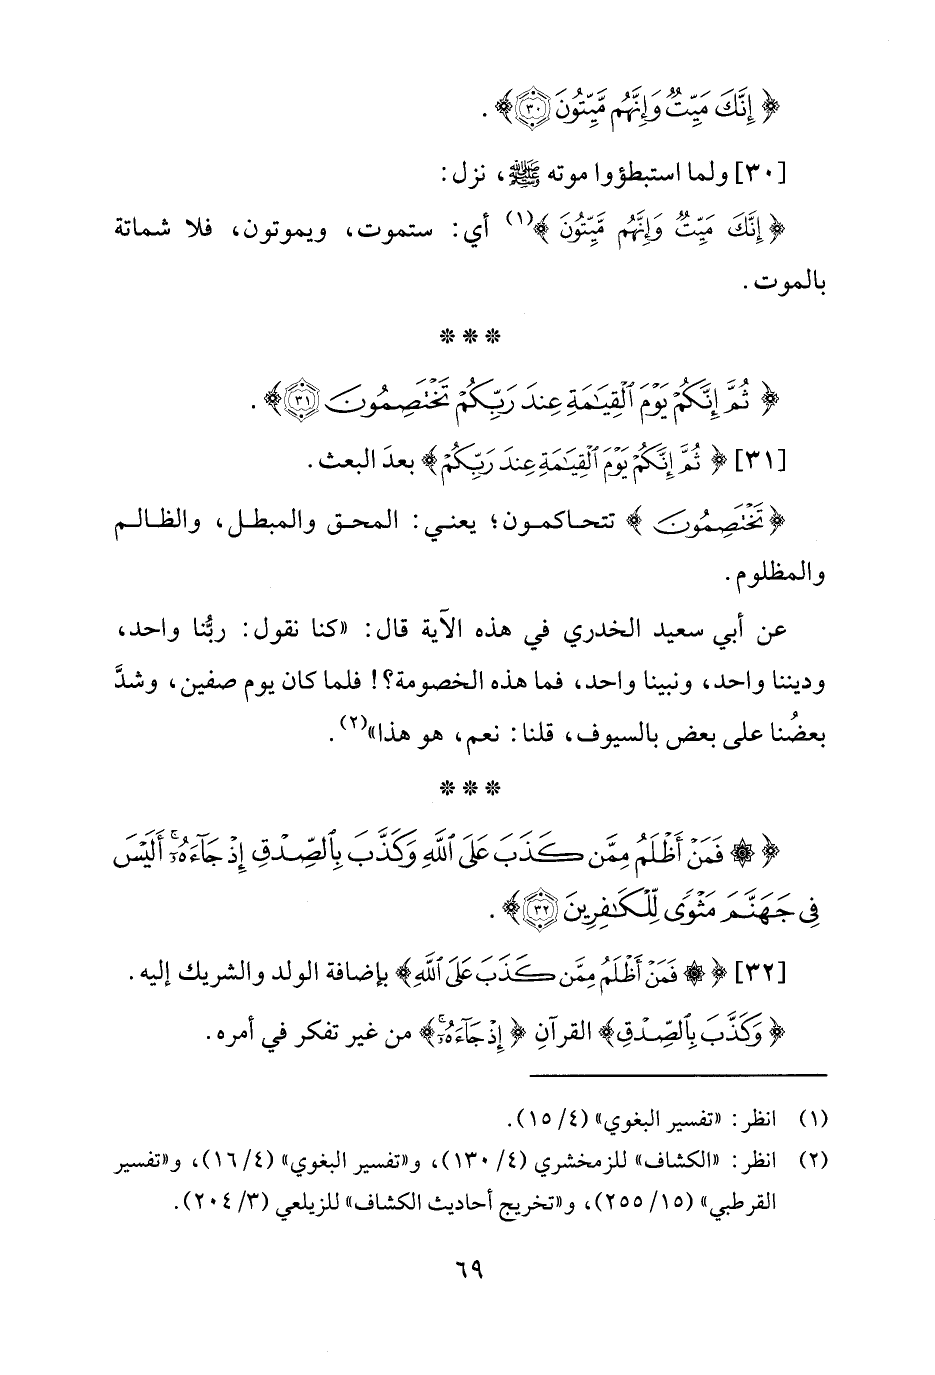 ﴿ إِنَّكَ مَيِّتٌ وَإِنَّهُم مَّيِّتُونَ ۝٣٠ ﴾ .
[٣٠] ولما استبطؤوا موته ﷺ، نزل:
﴿ إِنَّكَ مَيِّتٌ وَإِنَّهُم مَّيِّتُونَ ﴾(١) أي: ستموت، ويموتون، فلا شماتة
بالموت.
* * *
﴿ ثُمَّ إِنَّكُمْ يَوْمَ ٱلْقِيَـٰمَةِ عِندَ رَبِّكُمْ تَخْتَصِمُونَ ۝٣١ ﴾ .
[٣١] ﴿ ثُمَّ إِنَّكُمْ يَوْمَ ٱلْقِيَـٰمَةِ عِندَ رَبِّكُمْ ﴾ بعدَ البعث.
﴿ تَخْتَصِمُونَ ﴾ تتحاكمون؛ يعني: المحق والمبطل، والظالم
والمظلوم.
عن أبي سعيد الخدري في هذه الآية قال: «كنا نقول: ربُّنا واحد،
وديننا واحد، ونبينا واحد، فما هذه الخصومة؟! فلما كان يوم صفين، وشدَّ
بعضُنا على بعض بالسيوف، قلنا: نعم، هو هذا»(٢).
* * *
﴿ ۞ فَمَنْ أَظْلَمُ مِمَّن كَذَبَ عَلَى ٱللَّهِ وَكَذَّبَ بِٱلصِّدْقِ إِذْ جَآءَهُۥٓ ۚ أَلَيْسَ
فِى جَهَنَّمَ مَثْوًى لِّلْكَـٰفِرِينَ ۝٣٢ ﴾ .
[٣٢] ﴿ ۞ فَمَنْ أَظْلَمُ مِمَّن كَذَبَ عَلَى ٱللَّهِ ﴾ بإضافة الولد والشريك إليه.
﴿ وَكَذَّبَ بِٱلصِّدْقِ ﴾ القرآنِ ﴿ إِذْ جَآءَهُۥٓ ۚ ﴾ من غير تفكر في أمره.
(١) انظر: «تفسير البغوي» (٤/ ١٥).
(٢) انظر: «الكشاف» للزمخشري (٤/ ١٣٠)، و«تفسير البغوي» (٤/ ١٦)، و«تفسير
القرطبي» (١٥/ ٢٥٥)، و«تخريج أحاديث الكشاف» للزيلعي (٣/ ٢٠٤).
٦٩